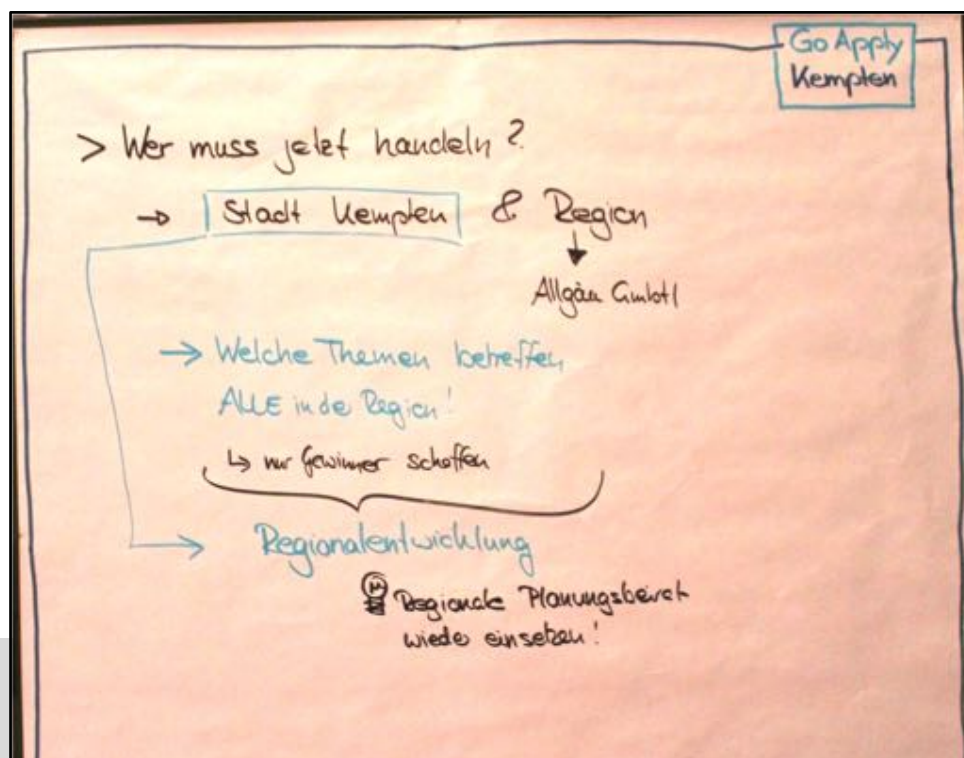 Go Apply
Kempten
> Wer muss jetzt handeln?
→ Stadt Kempten & Region
Allgäu GmbH
→ Welche Themen betreffen
ALLE in de Region!
↳ nur Gewinner schaffen
→ Regionalentwicklung
Regionale Planungsbeirat
wiede einsetzen!